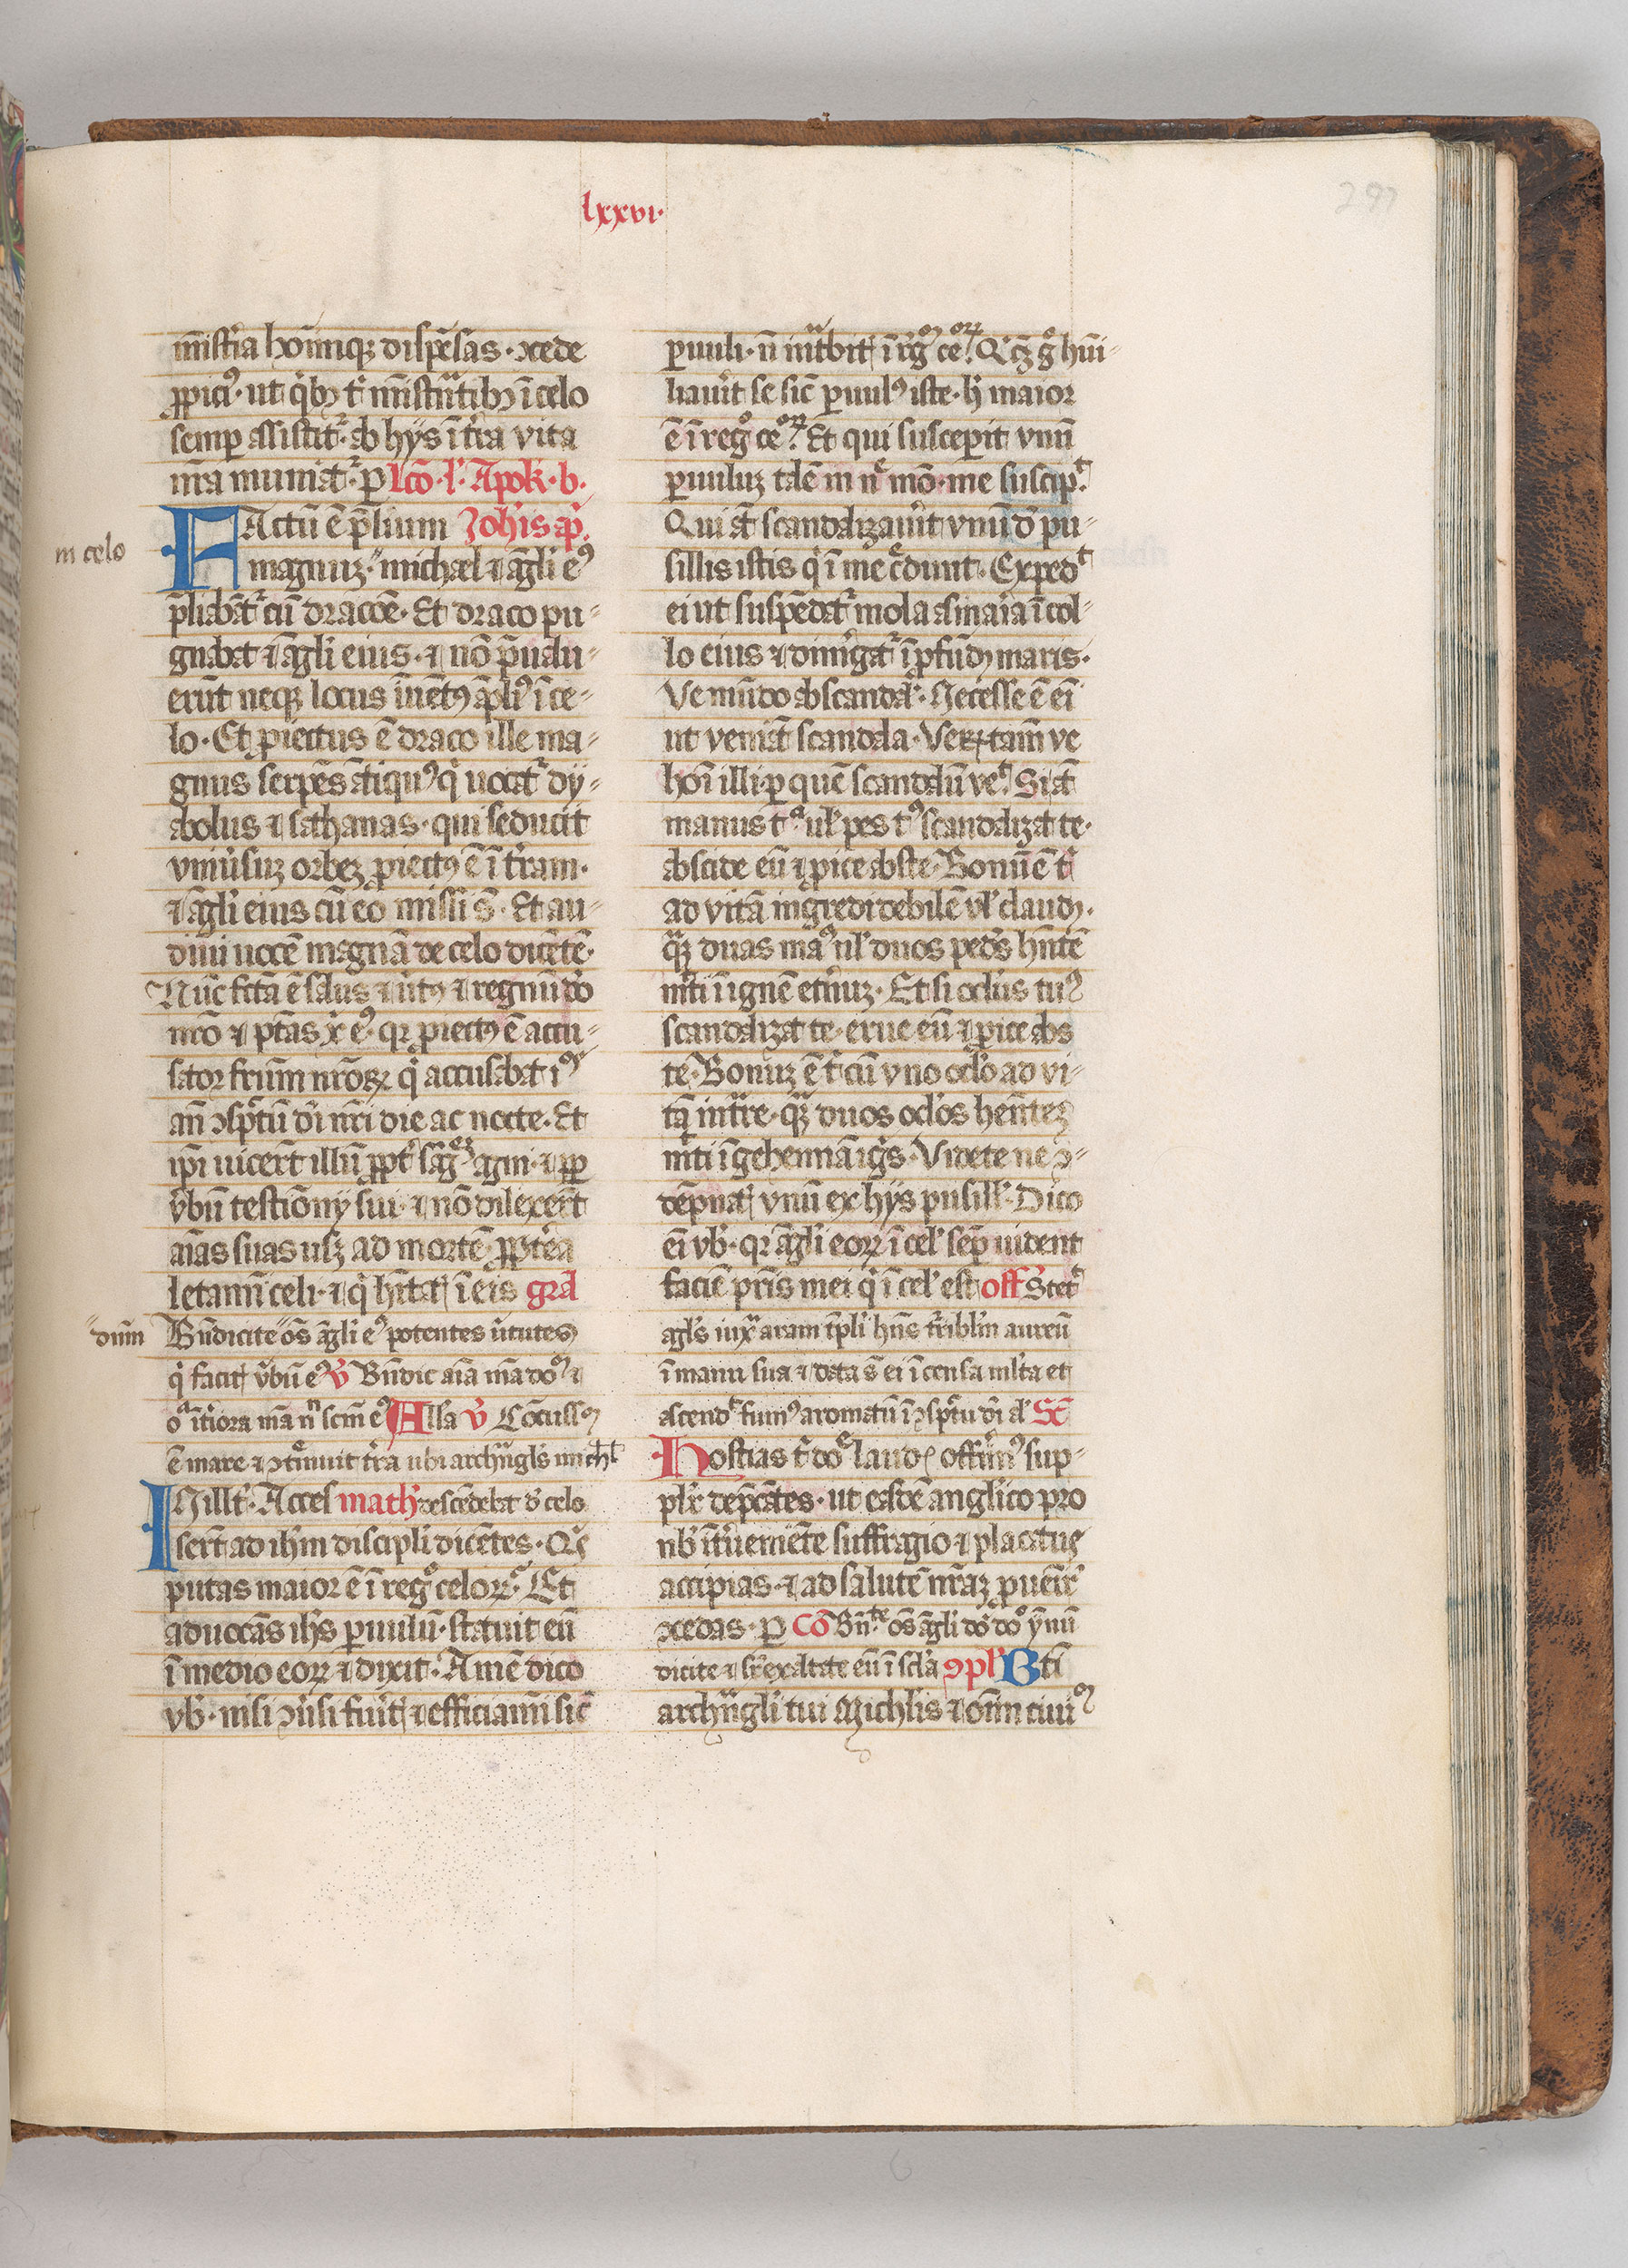 lxxvi·
297
mīstr̄ia hoīmq; dispēsas · ꝯcede
ꝓpici9 · ut q̇b9 t' mīstrātib9 ī celo
semp assistit᷑ · ab hys ī tr̄a vita
nr̄a muniat᷑ · p lc̄o · l' · Apok · b ·
FActū ē p̄lium Joh'is ap̄ ·
in celo
magnuz · " michael ⁊ āgli e9
p̄liabāt᷑ cū dracōe · Et draco pu-
gnabat ⁊ āgli eius · ⁊ nō p̄ualu-
erūt neq; locus īuēt9 ē āpli9 ī ce-
lo · Et ꝓiectus ē draco ille ma-
gnus serpēs ātiqu9 q' uocat᷑ dy-
abolus ⁊ sathanas · qui seducit
vniu'suz orbez ꝓiect9 ē ī t'ram ·
⁊ āgli eius cū eo missi s̄ · Et au-
diui uocē magnā de celo dicētē ·
Nūc fc̄ā ē salus ⁊ u't9 ⁊ regnū dō
nr̄o ⁊ ptās x̄ e9 · qr ꝓiect9 ē accu-
sator fr̄um nr̄oꝝ q' accusabat i9
an̄ ꝯspc̄tū dī nr̄i die ac nocte · Et
ip̄i uicer̄t illū ꝓpt' sāg agni · ⁊ ꝓp
v̄bū testiōny sui · ⁊ nō dilexer̄t
aīas suas usq; ad mortē · ꝓpt'ea
letamī celi · ⁊ q' hītat ī eis gra̅d
"dn̄m
Bn̄dicite " os̄ āgli e9 potentes u'tutes
q' facit v̄bū e9 v̄ Bn̄dic aīa mā dō9 ⁊
oīa īt'iora mā n̄ scm̄ e9 All'a v̄ Cōcuss9
ē mare ⁊ ꝯt'muit t'ra ubi archāgl's mich'l
INill't' · Acces math' descēdebat d' celo
sert ad ih'm discipli dicētes · Qs̄
putas maior ē ī regº celoꝝ · Et
aduocās ih's puulū · statuit eū
ī medio eoꝝ ⁊ dixit · Amē dico
vb' · nisi ꝯu'si fuit' ⁊ efficiamī sic̄
puuli · n̄ int'bit' ī rgº ceºꝝ · Qicūq; gº hūi-
liauit se sic̄ puul9 iste · h' maior
ē ī regº ceºꝝ · Et qui suscepit vnū
puuluz talē in nē mō · me suscipt ·
Qui āt scandalizau'it vnū d' pu-
sillis istis q' ī me c'dunt · Expedt
ei ut suspēdat᷑ mola asinaīa ī col-
lo eius ⁊ dimˈgat᷑ ī ꝓfūd9 maris ·
Ve mūdo ab scandal' · Necesse ē eī
ut veniāt scandala · Veꝝtam̄ ve
hoī illi · p quē scandalū ve9 · Si āt
manus tª ul' pes t9 scandalizat te ·
abscide eū ⁊ ꝓice abs te · Bonū ē t'
ad vitā ingredi debilē vl' claud9 ·
q̄z duas mā9 ul' duos ped's hn̄tē
mīti ī ignē et'nuz · Et si ocl'us tu9
scandalizat te · erue eū ⁊ ꝓice abs
te · Bonuz ē t' cū vno oclō ad vi-
tā int̄re · q̄z duos ocl'os hen̄tez
mīti ī gehennā igs · Videte ne ꝯ-
tēpnat' vnū ex hys pusill' · Dico
eī vb' · qr āgl'i eoꝝ ī cel' sēp uident
faciē pr̄is mei q' ī cel' est off' Stet
āgl's iuxª aram tp̄li hn̄s t'ribl'm aureū
ī manu sua ⁊ data s̄ ei īcensa ml'ta et
ascendt fum9 aromatū ī ꝯspc̄tu dī al' Sc̄
Hostias t' dōe laud' offim9 sup-
pl'r dep̄cātes · ut easdē angl'ico pro
nb' īt'ueniētē suffragio ⁊ placatus
accipias · ⁊ ad salutē nr̄az ꝓueīr'
ꝯcedas · p Cō Bn̄te os̄ āgli dō dō ȳnū
dicite ⁊ sr̄exaltate eū ī scl'a ꝯpl' Bti
archāgl'i tui Michl'is ⁊ oīm ciui9